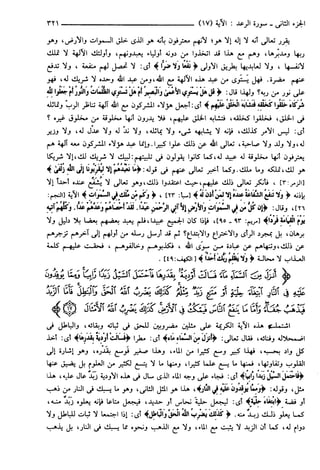 الجزء الثاني - سورة الرعد : الآية (١٧) ٣٢١
يقرر تعالى أنه لا إله إلا هو؛ لأنهم معترفون بأنه هو الذي خلق السموات والأرض، وهو
ربها ومدبرها، وهم مع هذا قد اتخذوا من دونه أولياء يعبدونهم، وأولئك الآلهة لا تملك
لأنفسها، ولا لعابديها بطريق الأولى ﴿نَفْعًا وَلَا ضَرًّا﴾ أي: لا تحصل لهم منفعة، ولا تدفع
عنهم مضرة. فهل يستوي من عبد هذه الآلهة مع الله، ومن عبد الله وحده لا شريك له، فهو
على نور من ربه؟ ولهذا قال: ﴿قُلْ هَلْ يَسْتَوِي الْأَعْمَىٰ وَالْبَصِيرُ أَمْ هَلْ تَسْتَوِي الظُّلُمَاتُ وَالنُّورُ أَمْ جَعَلُوا لِلَّهِ
شُرَكَاءَ خَلَقُوا كَخَلْقِهِ فَتَشَابَهَ الْخَلْقُ عَلَيْهِمْ﴾ أي: أجعل هؤلاء المشركون مع الله آلهة تناظر الرب وتماثله
في الخلق، فخلقوا كخلقه، فتشابه الخلق عليهم، فلا يدرون أنها مخلوقة من مخلوق غيره ؟
أي: ليس الأمر كذلك، فإنه لا يشابهه شيء ولا يماثله، ولا ند له ولا عدل له، ولا وزير
له، ولا ولد ولا صاحبة، تعالى الله عن ذلك علوا كبيرا. وإنما عبد هؤلاء المشركون معه آلهة هم
يعترفون أنها مخلوقة له عبيد له، كما كانوا يقولون في تلبيتهم: لبيك لا شريك لك، إلا شريكا
هو لك، تملكه وما ملك. وكما أخبر تعالى عنهم في قوله: ﴿مَا نَعْبُدُهُمْ إِلَّا لِيُقَرِّبُونَا إِلَى اللَّهِ زُلْفَىٰ﴾
[الزمر: ٣] ، فأنكر تعالى ذلك عليهم، حيث اعتقدوا ذلك، وهو تعالى لا يشفع عنده أحد إلا
بإذنه ﴿وَلَا تَنْفَعُ الشَّفَاعَةُ عِنْدَهُ إِلَّا لِمَنْ أَذِنَ لَهُ﴾ [سبأ: ٢٣] ، ﴿وَكَمْ مِنْ مَلَكٍ فِي السَّمَاوَاتِ﴾ الآية [النجم:
٢٦]، وقال: ﴿إِنْ كُلُّ مَنْ فِي السَّمَاوَاتِ وَالْأَرْضِ إِلَّا آتِي الرَّحْمَٰنِ عَبْدًا . لَقَدْ أَحْصَاهُمْ وَعَدَّهُمْ عَدًّا . وَكُلُّهُمْ آتِيهِ
يَوْمَ الْقِيَامَةِ فَرْدًا﴾ [مريم: ٩٣ - ٩٥]، فإذا كان الجميع عبيدا، فلم يعبد بعضهم بعضا بلا دليل ولا
برهان، بل بمجرد الرأي والاختراع والابتداع؟ ثم قد أرسل رسله من أولهم إلى آخرهم تزجرهم
عن ذلك، وتنهاهم عن عبادة من سوى الله ، فكذبوهم وخالفوهم، فحقت عليهم كلمة
العذاب لا محالة ﴿وَلَا يَظْلِمُ رَبُّكَ أَحَدًا﴾ [الكهف: ٤٩] .
﴿أَنْزَلَ مِنَ السَّمَاءِ مَاءً فَسَالَتْ أَوْدِيَةٌ بِقَدَرِهَا فَاحْتَمَلَ السَّيْلُ زَبَدًا رَابِيًا وَمِمَّا يُوقِدُونَ
عَلَيْهِ فِي النَّارِ ابْتِغَاءَ حِلْيَةٍ أَوْ مَتَاعٍ زَبَدٌ مِثْلُهُ كَذَٰلِكَ يَضْرِبُ اللَّهُ الْحَقَّ وَالْبَاطِلَ فَأَمَّا الزَّبَدُ
فَيَذْهَبُ جُفَاءً وَأَمَّا مَا يَنْفَعُ النَّاسَ فَيَمْكُثُ فِي الْأَرْضِ كَذَٰلِكَ يَضْرِبُ اللَّهُ الْأَمْثَالَ ۝١٧﴾
اشتملت هذه الآية الكريمة على مثلين مضروبين للحق في ثباته وبقائه، والباطل في
اضمحلاله وفنائه، فقال تعالى: ﴿أَنْزَلَ مِنَ السَّمَاءِ مَاءً﴾ أي: مطرا ﴿فَسَالَتْ أَوْدِيَةٌ بِقَدَرِهَا﴾ أي: أخذ
كل واد بحسبه، فهذا كبير وسع كثيرا من الماء، وهذا صغير فوسع بقدره، وهو إشارة إلى
القلوب وتفاوتها، فمنها ما يسع علما كثيرا، ومنها ما لا يتسع لكثير من العلوم بل يضيق عنها
﴿فَاحْتَمَلَ السَّيْلُ زَبَدًا رَابِيًا﴾ أي: فجاء على وجه الماء الذي سال في هذه الأودية زبد عال عليه، هذا
مثل، وقوله: ﴿وَمِمَّا يُوقِدُونَ عَلَيْهِ فِي النَّارِ﴾، هذا هو المثل الثاني، وهو ما يسبك في النار من ذهب
أو فضة ﴿ابْتِغَاءَ حِلْيَةٍ﴾ أي: ليجعل حلية نحاس أو حديد، فيجعل متاعا فإنه يعلوه زبد منه،
كما يعلو ذلك زبد منه. ﴿كَذَٰلِكَ يَضْرِبُ اللَّهُ الْحَقَّ وَالْبَاطِلَ﴾ أي: إذا اجتمعا لا ثبات للباطل ولا
دوام له، كما أن الزبد لا يثبت مع الماء، ولا مع الذهب ونحوه مما يسبك في النار، بل يذهب